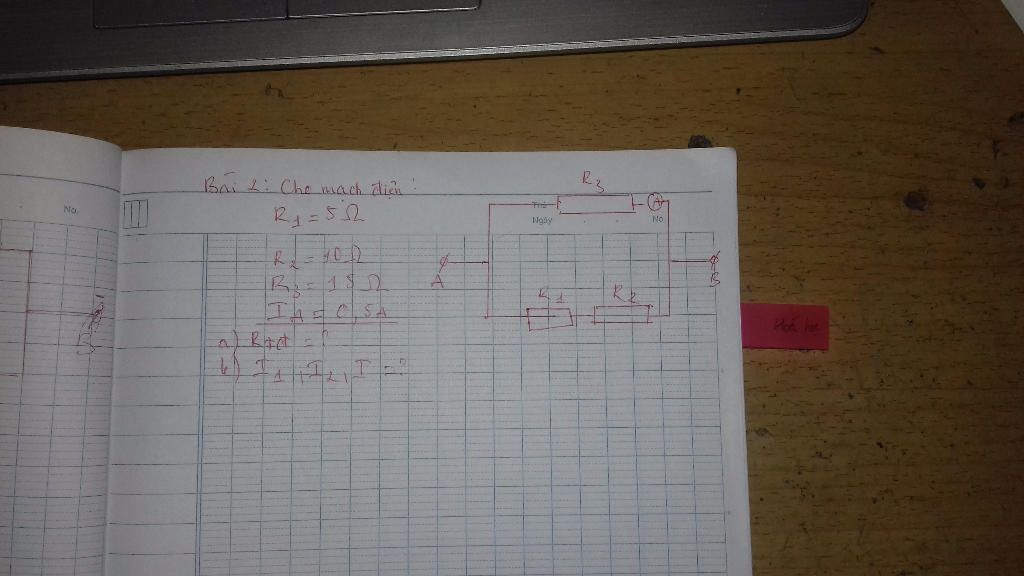 No.
Bài 2: Cho mạch điện:
R1 = 5Ω
R2 = 10Ω
R3 = 15Ω
IA = 0,5A
a) Rtđ = ?
b) I1, I2, I = ?
R3
A
Thứ
Ngày
No
A
B
R1
R2
B